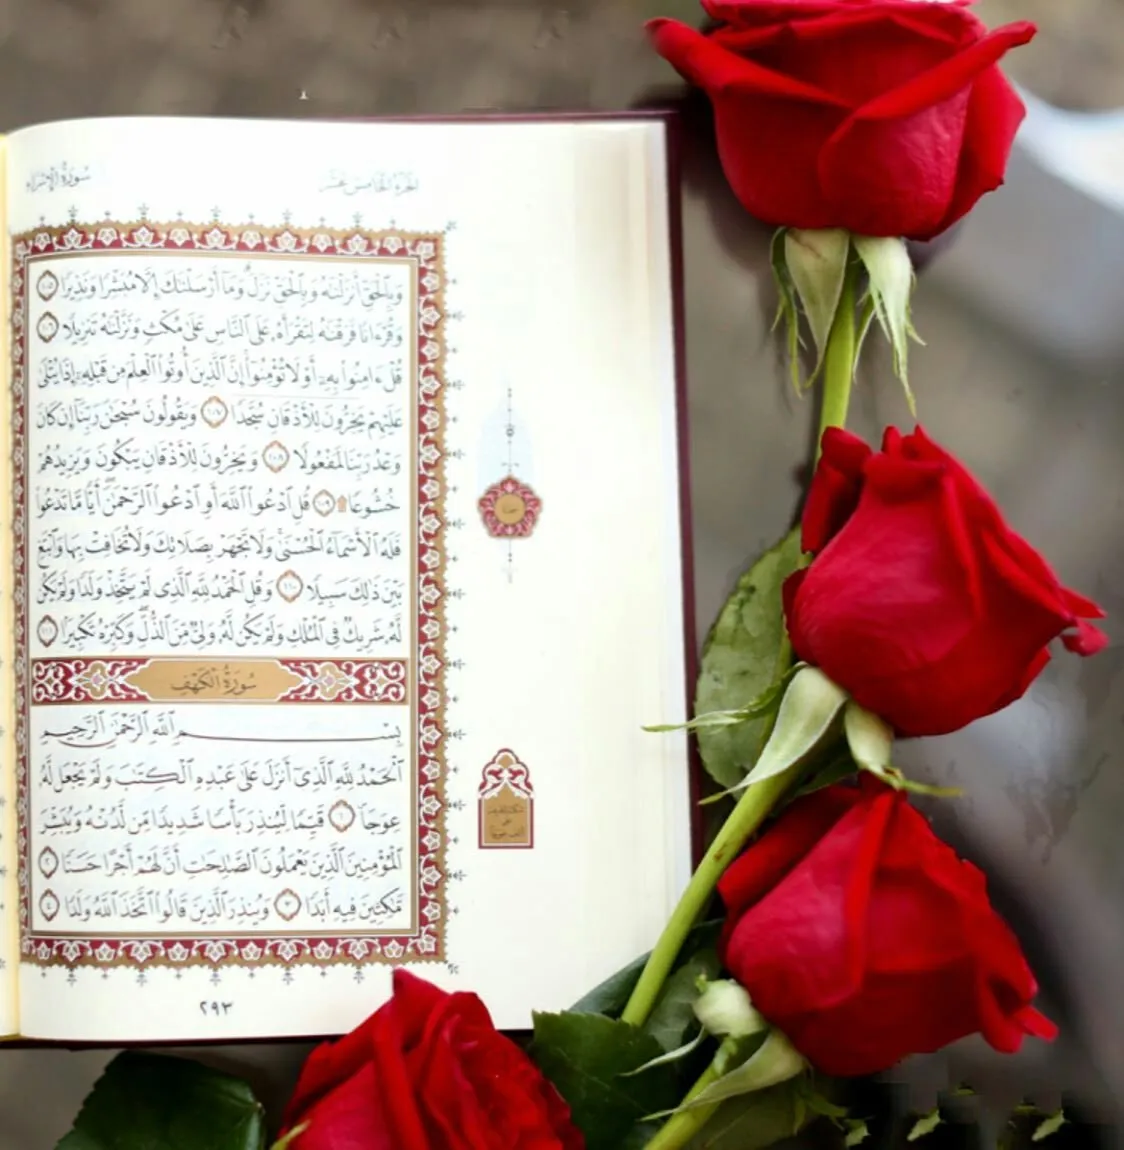 سُورَةُ الإِسْرَاءِ الجُزْءُ الخَامِسَ عَشَرَ
وَبِٱلْحَقِّ أَنزَلْنَٰهُ وَبِٱلْحَقِّ نَزَلَ ۗ وَمَآ أَرْسَلْنَٰكَ إِلَّا مُبَشِّرًا وَنَذِيرًا ١٠٥
وَقُرْءَانًا فَرَقْنَٰهُ لِتَقْرَأَهُۥ عَلَى ٱلنَّاسِ عَلَىٰ مُكْثٍ وَنَزَّلْنَٰهُ تَنزِيلًا ١٠٦
قُلْ ءَامِنُوا۟ بِهِۦٓ أَوْ لَا تُؤْمِنُوٓا۟ ۚ إِنَّ ٱلَّذِينَ أُوتُوا۟ ٱلْعِلْمَ مِن قَبْلِهِۦٓ إِذَا يُتْلَىٰ
عَلَيْهِمْ يَخِرُّونَ لِلْأَذْقَانِ سُجَّدًا ١٠٧ وَيَقُولُونَ سُبْحَٰنَ رَبِّنَآ إِن كَانَ
وَعْدُ رَبِّنَا لَمَفْعُولًا ١٠٨ وَيَخِرُّونَ لِلْأَذْقَانِ يَبْكُونَ وَيَزِيدُهُمْ
خُشُوعًا ۩ ١٠٩ قُلِ ٱدْعُوا۟ ٱللَّهَ أَوِ ٱدْعُوا۟ ٱلرَّحْمَٰنَ ۖ أَيًّا مَّا تَدْعُوا۟
فَلَهُ ٱلْأَسْمَآءُ ٱلْحُسْنَىٰ ۚ وَلَا تَجْهَرْ بِصَلَاتِكَ وَلَا تُخَافِتْ بِهَا وَٱبْتَغِ
بَيْنَ ذَٰلِكَ سَبِيلًا ١١٠ وَقُلِ ٱلْحَمْدُ لِلَّهِ ٱلَّذِى لَمْ يَتَّخِذْ وَلَدًا وَلَمْ يَكُن
لَّهُۥ شَرِيكٌ فِى ٱلْمُلْكِ وَلَمْ يَكُن لَّهُۥ وَلِىٌّ مِّنَ ٱلذُّلِّ ۖ وَكَبِّرْهُ تَكْبِيرًۢا ١١١
سُورَةُ الكَهْفِ
بِسْمِ ٱللَّهِ ٱلرَّحْمَٰنِ ٱلرَّحِيمِ
ٱلْحَمْدُ لِلَّهِ ٱلَّذِىٓ أَنزَلَ عَلَىٰ عَبْدِهِ ٱلْكِتَٰبَ وَلَمْ يَجْعَل لَّهُۥ
عِوَجَا ۜ ١ قَيِّمًا لِّيُنذِرَ بَأْسًا شَدِيدًا مِّن لَّدُنْهُ وَيُبَشِّرَ
ٱلْمُؤْمِنِينَ ٱلَّذِينَ يَعْمَلُونَ ٱلصَّٰلِحَٰتِ أَنَّ لَهُمْ أَجْرًا حَسَنًا ٢
مَّٰكِثِينَ فِيهِ أَبَدًا ٣ وَيُنذِرَ ٱلَّذِينَ قَالُوا۟ ٱتَّخَذَ ٱللَّهُ وَلَدًا ٤
٢٩٣